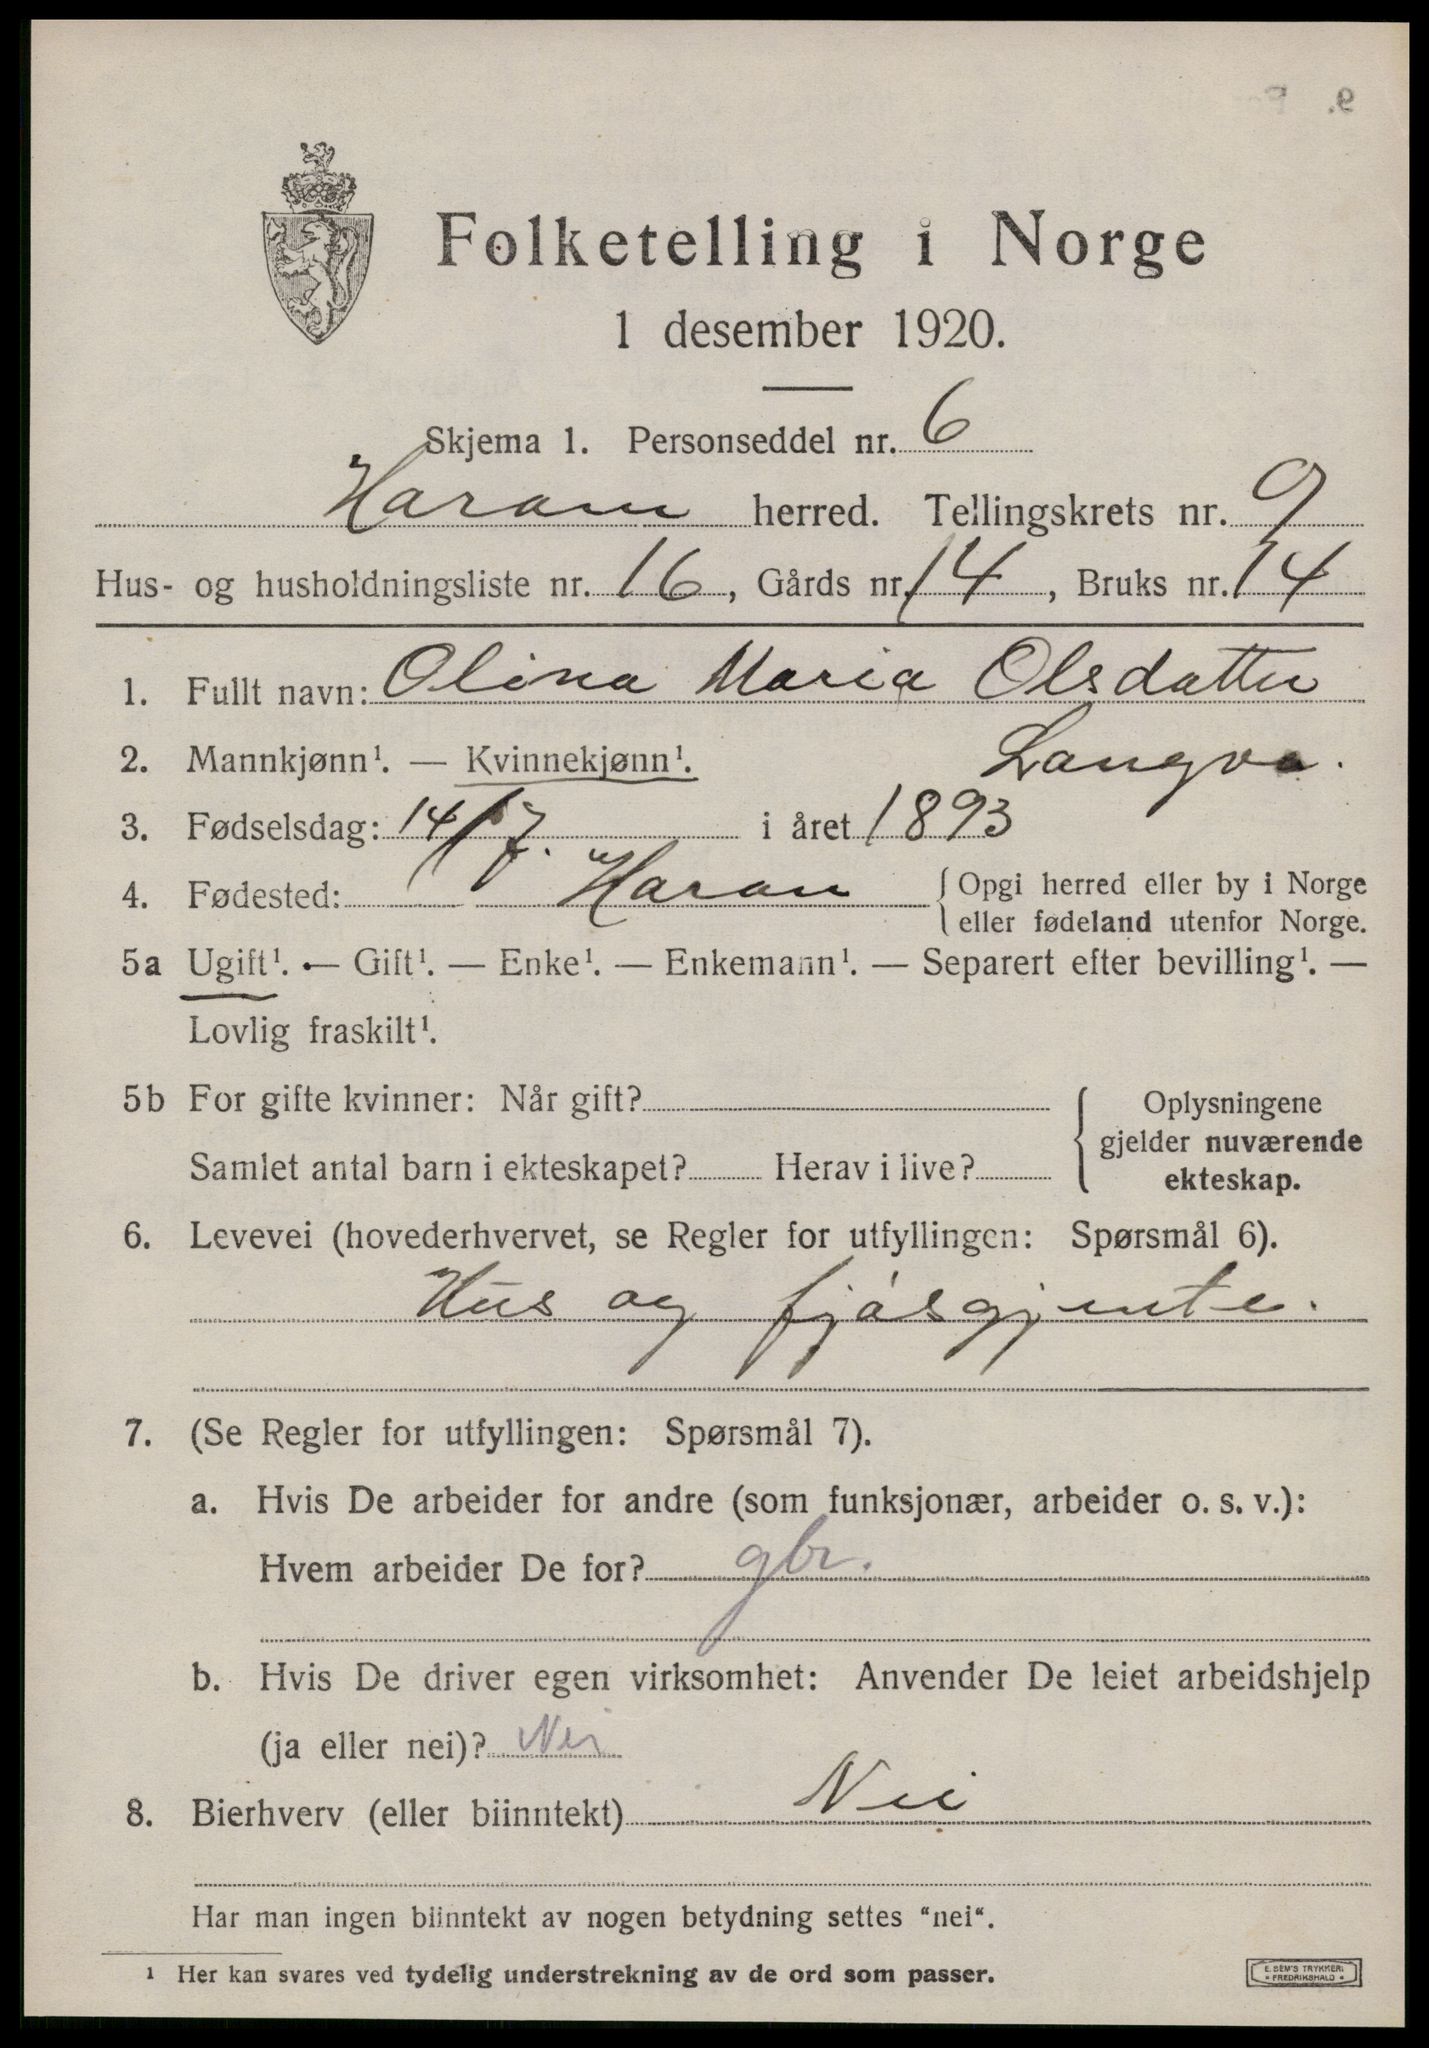 Folketelling i Norge
1 desember 1920.
Skjema 1. Personseddel nr. 6
Haram herred. Tellingskrets nr. 9
Hus- og husholdningsliste nr. 16, Gårds nr. 14, Bruks nr. 14
1. Fullt navn: Olina Maria Olsdatter
2. Mannkjønn¹. — Kvinnekjønn¹. Langva.
3. Fødselsdag: 14/7. i året 1893
4. Fødested: Haram { Opgi herred eller by i Norge
eller fødeland utenfor Norge.
5a Ugift¹. — Gift¹. — Enke¹. — Enkemann¹. — Separert efter bevilling¹. —
Lovlig fraskilt¹.
5b For gifte kvinner: Når gift? { Oplysningene
gjelder nuværende
Samlet antal barn i ekteskapet? Herav i live? ekteskap.
6. Levevei (hovederhvervet, se Regler for utfyllingen: Spørsmål 6).
Hus og fjøsgjente.
7. (Se Regler for utfyllingen: Spørsmål 7).
a. Hvis De arbeider for andre (som funksjonær, arbeider o. s. v.):
Hvem arbeider De for? gbr.
b. Hvis De driver egen virksomhet: Anvender De leiet arbeidshjelp
(ja eller nei)? Nei
8. Bierhverv (eller biinntekt) Nei
Har man ingen biinntekt av nogen betydning settes "nei".
¹ Her kan svares ved tydelig understrekning av de ord som passer.
E. SEM'S TRYKKERI
FREDRIKSHALD